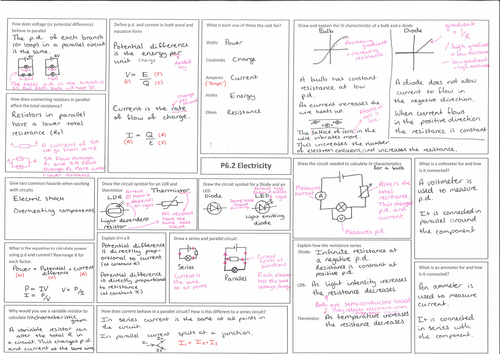 How does voltage (or potential difference)
behave in parallel
The p.d. of each branch
(or loop) in a parallel circuit
is the same.
The total p.d. in the branch is
6V. But each bulb will have 3V.
How does connecting resistors in parallel
affect the total resistance?
Resistors in parallel
have a lower total
resistance (RT)
Give two common hazards when working
with circuits
Electric shock
Overheating components
What is the equation to calculate power
using p.d and current? Rearrange it for
each factor.
Power = Potential x current
difference
P = IV
V = P/I
I = P/V
Why would you use a variable resistor to
A variable resistor can
alter the total R in
a circuit. This changes p.d
and current at the same time.
Define p.d. and current in both word and
equation form
Potential difference
is the energy per
unit charge
divided by
V = E (J)
(V) Q (C)
Current is the rate
of flow of charge.
I = Q (C)
(A) t (s)
What is each one of these the unit for?
Watts Power
Coulombs Charge
Amperes Current
("Amps")
Joules Energy
Ohms Resistance
Draw and explain the IV characteristics of a bulb and a diode
Bulb
decreasing
gradient
= increasing
resistance
A bulb has constant
resistance at low
p.d.
As current increases the
wire heats up.
The lattice of ions in the
wire vibrates more.
This increases the number
of electron collisions, and increases the resistance.
Diode
gradient
= 1/R
high gradient
= low resistance
low gradient
= high resistance
A diode does not allow
current to flow in
the negative direction.
When current flows
in the positive direction
the resistance is constant
P6.2 Electricity
Draw the circuit symbol for an LDR and
thermistor
LDR
Thermistor
Light dependent
resistor
Draw the circuit symbol for a Diode and an
LED
Diode
LED
Light emitting
diode
Explain V=I x R
Potential difference
is directly propor-
tional to current
(at constant R)
Potential difference
is directly proportional
to resistance
(at constant I)
Draw a series and parallel circuit:
Series
Current is
the same
at all points
Parallel
How does current behave in a parallel circuit? How is this different to a series circuit?
In series current is the same at all points in
the circuit.
In parallel current splits at a junction.
I1 = I2 + I3
Draw the circuit needed to calculate IV characteristics
for a bulb
Measures
current
Alters the
total
resistance
This changes
p.d. and
current
Measures
p.d.
What is a voltmeter for and how
is it connected?
A voltmeter is
used to measure
p.d.
It is connected in
parallel around
the component
Explain how the resistance varies
Diode: Infinite resistance at
a negative p.d.
Resistance is constant at
positive p.d.
LDR: As light intensity increases
the resistance decreases
Thermistor: As temperature increases
the resistance decreases
What is an ammeter for and how
is it connected?
An ammeter is
used to measure
current.
It is connected
in series with
the component.